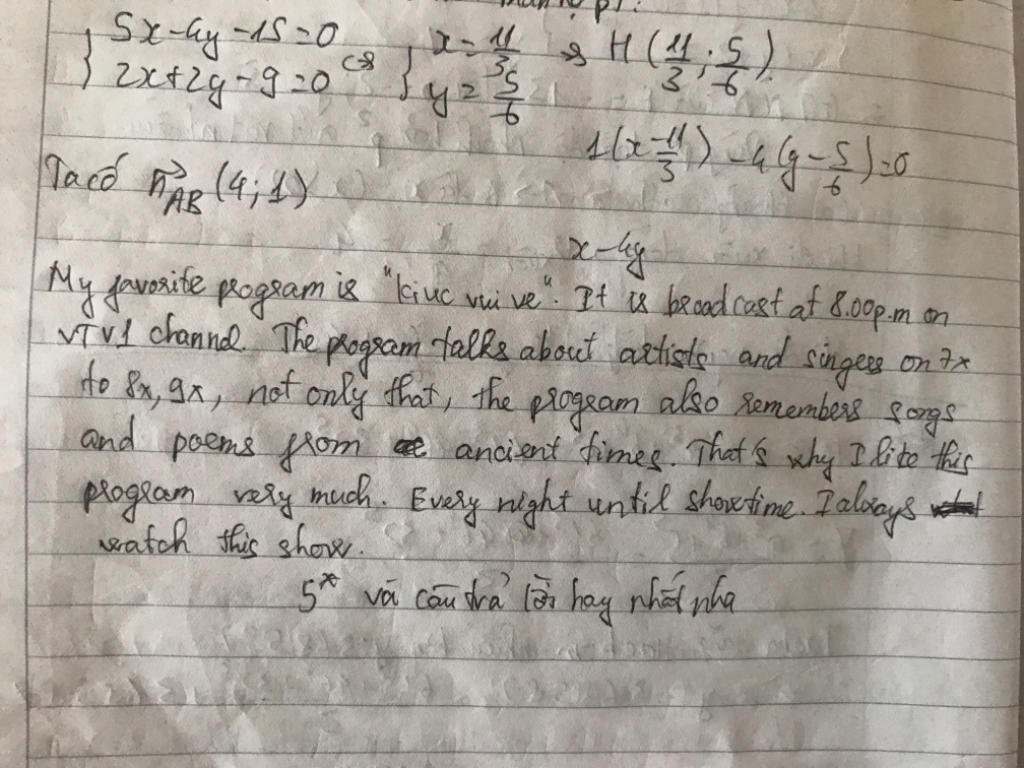 5x-4y-15=0
2x+2y-9=0 <=> x=11/3 y=5/6 => H(11/3; 5/6)
1(x-11/3)-4(y-5/6)=0
Ta có n⃗AB (4;1)
x-4y
My favorite program is "kí ưc vui ve". It is broadcast at 8.00p.m on
VTV1 channel. The program talks about artists and singers on 7x
to 8x, 9x, not only that, the program also remembers songs
and poems from ancient times. That's why I like this
program very much. Every night until showtime. I always
watch this show.
5* và câu trả lời hay nhất nha